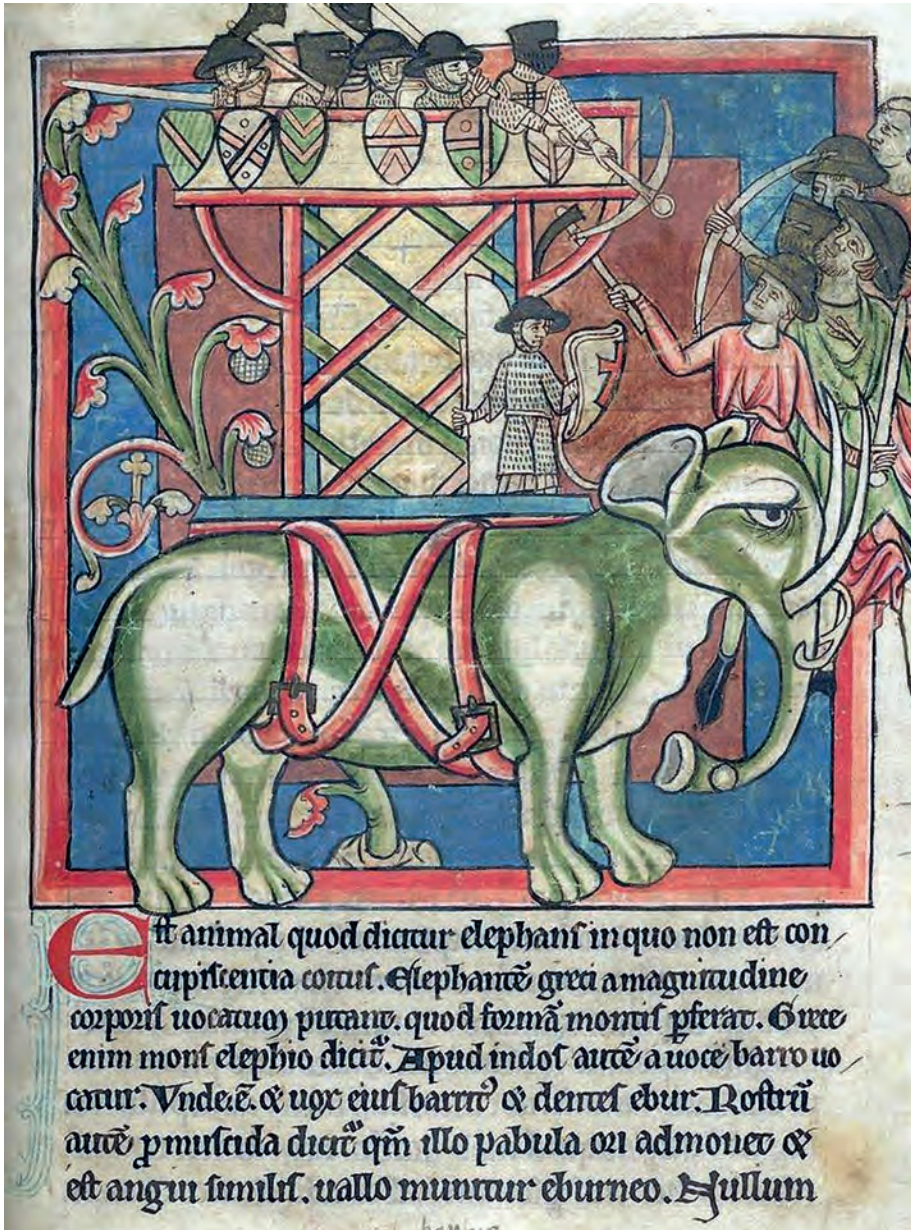 Est animal quod dicitur elephans in quo non est con/
cupiscentia coitus. Elephantē greci a magnitudine
corporis uocatum putant. quod formā montis p̄ferat. Grece
enim mons elephio dicit͛. Apud indos autē a uoce barro uo/
catur. Vnde.ē. & uox eius barrit᷒ & dentes ebur. Rostrū
autē ꝓmuscida dicit͛ qm̄ illo pabula ori admouet &
est angui similis. uallo munitur eburneo. Nullum